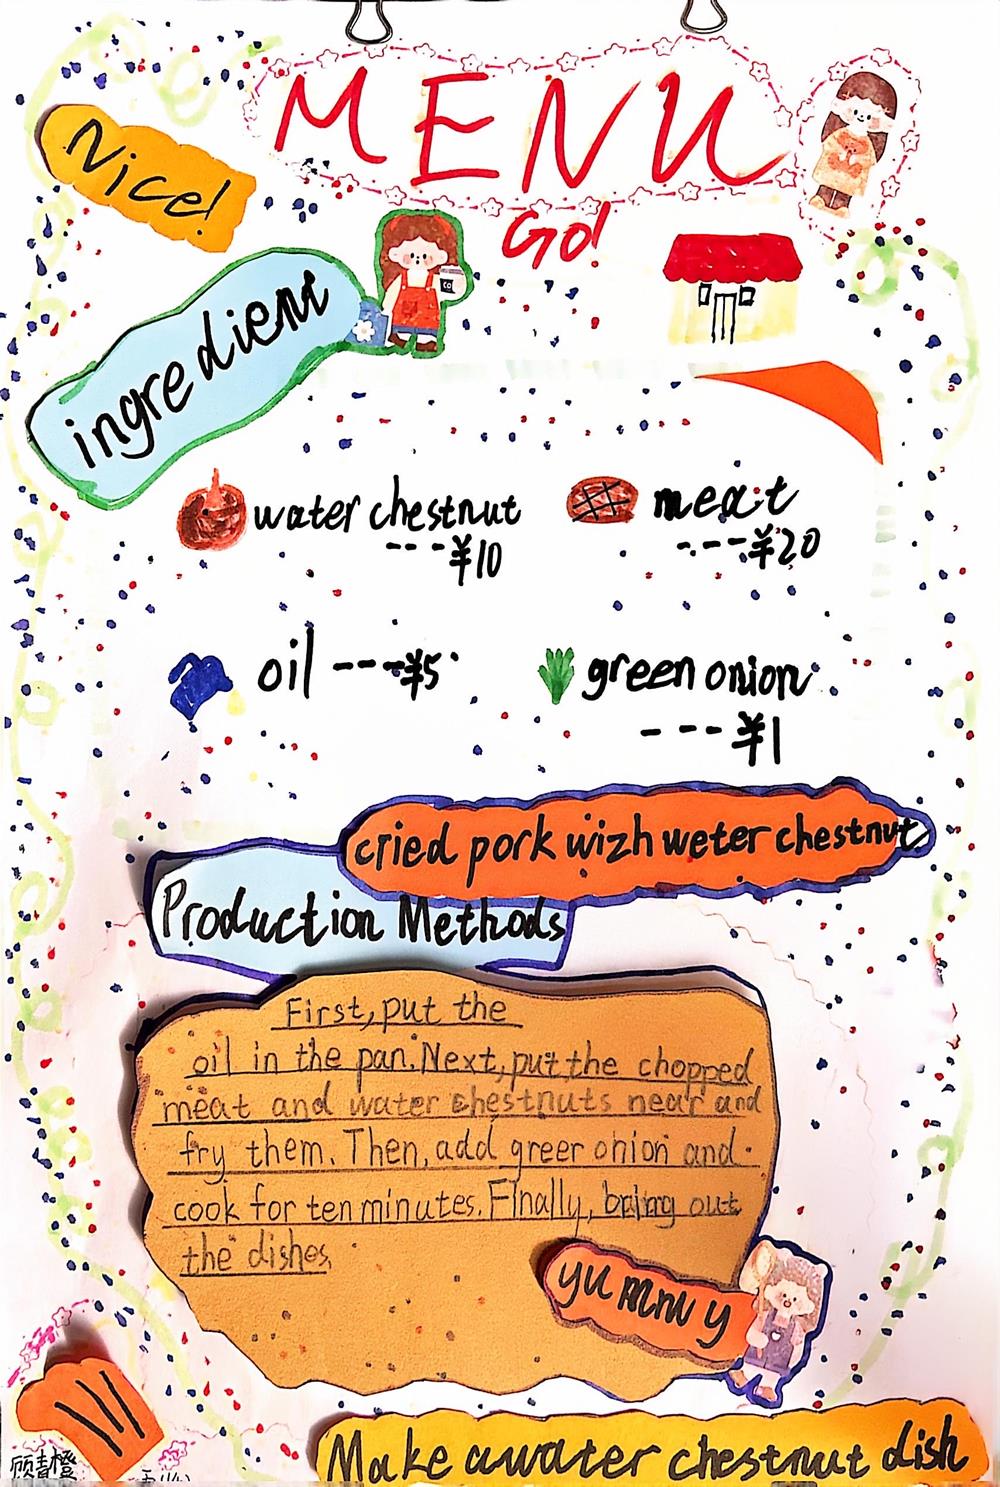 MENU
Nice!
Go!
ingredient
water chestnut
---¥10
meat
----¥20
oil ---¥5
green onion
---¥1
cried pork wizh weter chestnut
Production Methods
First, put the
oil in the pan. Next, put the chopped
meat and water chestnuts near and
fry them. Then, add greer onion and
cook for ten minutes. FInally, bring out
the dishes.
yummy
Make a water chestnut dish
顾青橙